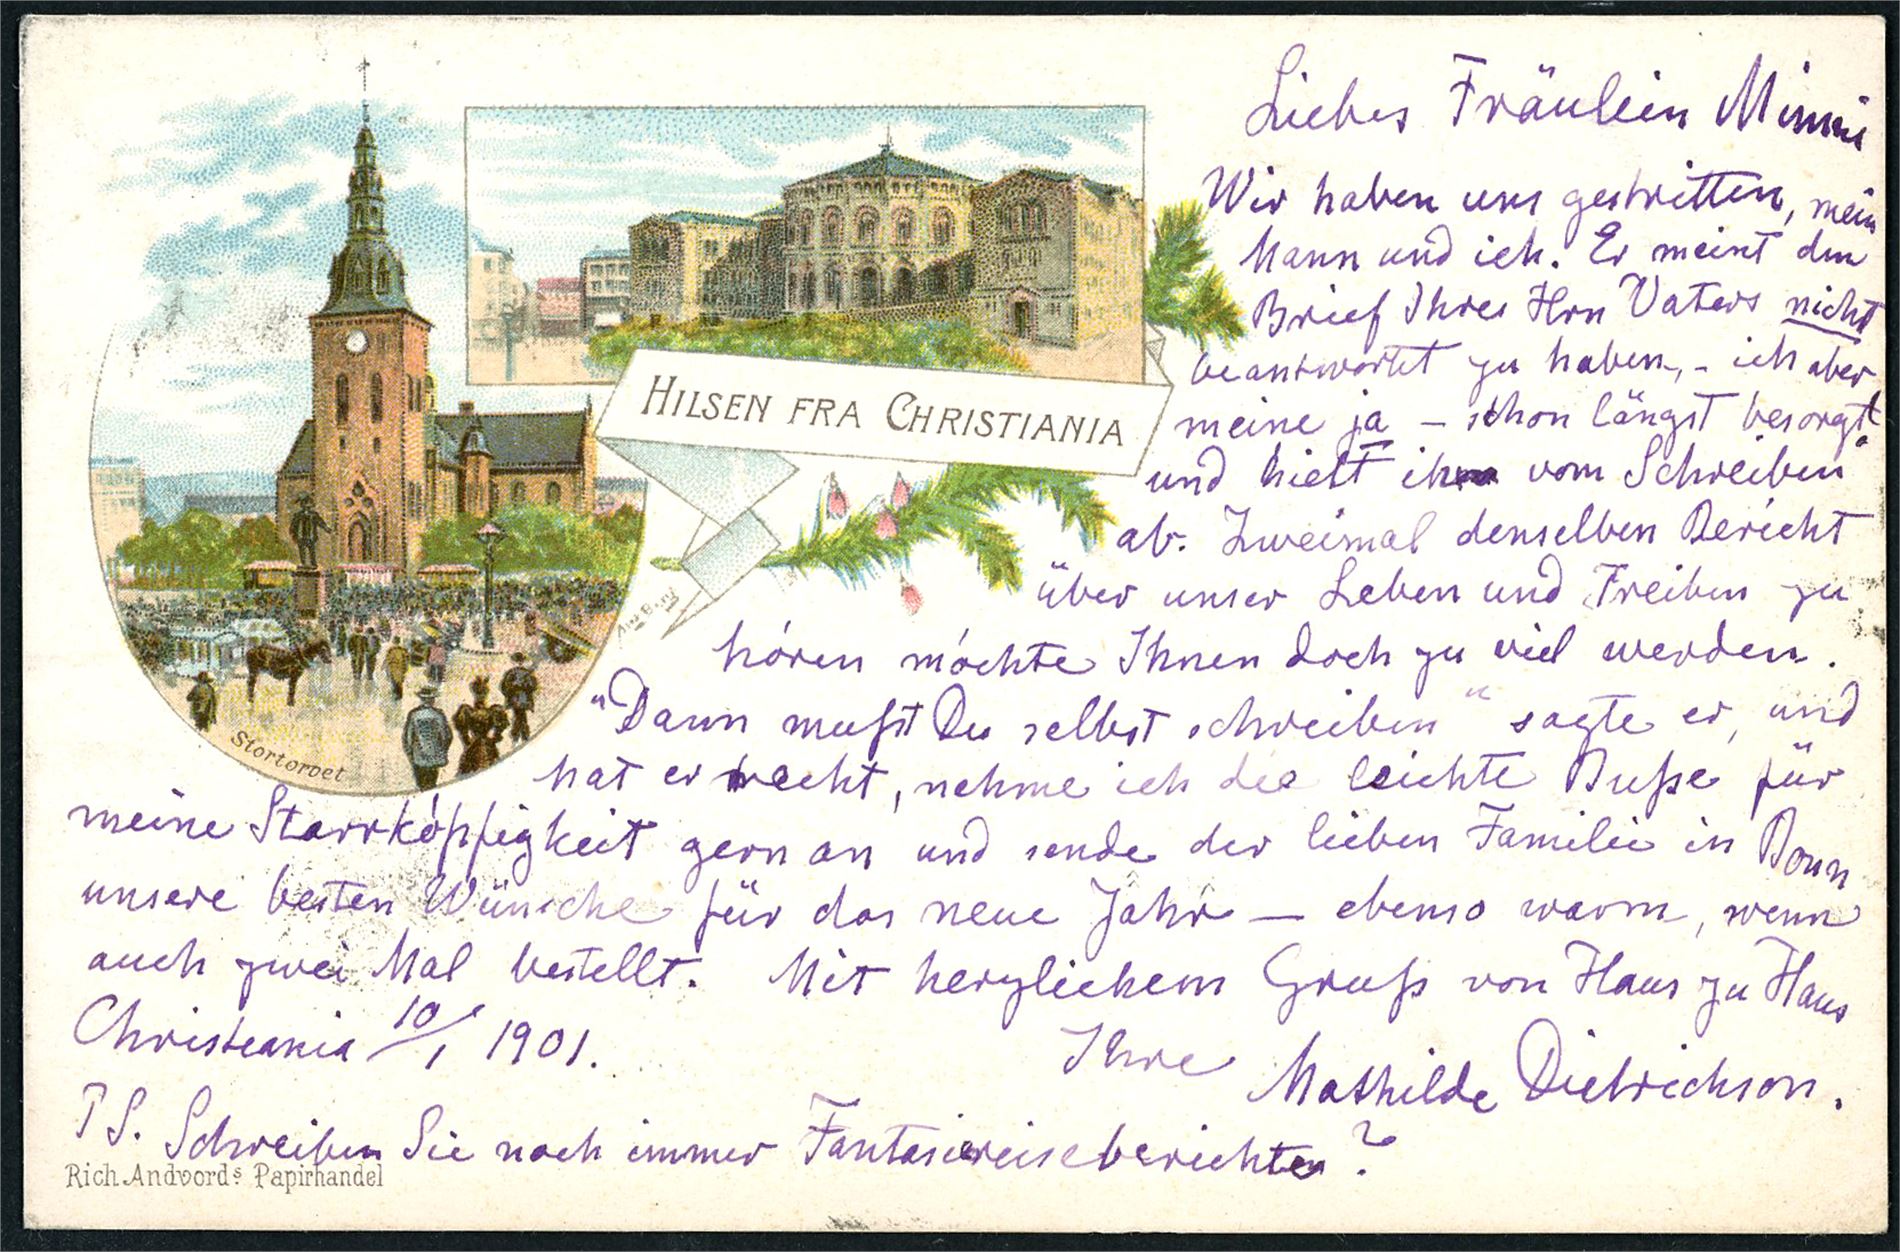 HILSEN FRA CHRISTIANIA
Stortorvet
Liebes Fräulein Minni
Wir haben uns gestritten, mein
Mann und ich. Er meint den
Brief Ihres Hrn Vaters nicht
beantwortet zu haben, - ich aber
meine ja – schon längst besorgt.
und hielt ihn vom Schreiben
ab. Zweimal denselben Bericht
über unser Leben und Treiben zu
hören möchte Ihnen doch zu viel werden.
"Dann mußt Du selbst schreiben" sagte er, und
hat er recht, nehme ich die leichte Buße für
meine Starrköpfigkeit gern an und sende der lieben Familie in Bonn
unsere besten Wünsche für das neue Jahr – ebenso warm, wenn
auch zwei Mal bestellt. Mit herzlichem Gruß von Haus zu Haus
Christiania 10/1 1901.
Ihre
Mathilde Dietrichson.
PS. Schreiben Sie noch immer Fantasiereiseberichten?
Rich. Andvords Papirhandel